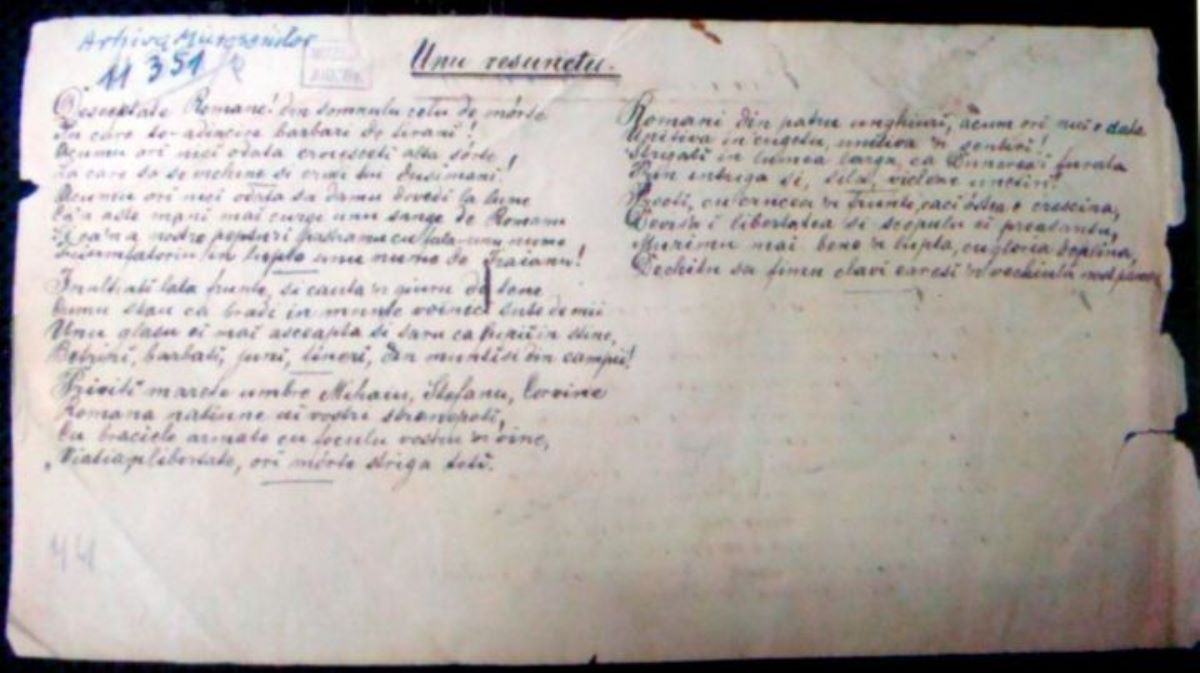 Arhiva Mureșenilor
11 351
Unu resunetu.
Desceptate Romane! din somnulu celu de mórte
In care te-adencire barbari de tirani!
Acumu ori nici odata croiesceti alta sórte
La care sa se inchine si crudii tei dusimani!
Acumu ori nici odata sa damu dovedi la lume
Ca'n aste mani mai curge unu sange de Romanu
Si ca'n a nostre pepturi pastramu cu fala unu nume
Triumfatoriu in lupte unu nume de Traianu!
Inaltiati lata frunte, si cauta'n giuru de tene
Cumu stau ca bradi in munte voinici sute de mii
Unu glasu ei mai ascеapta si saru ca lupii in stine,
Betrani, barbati, juni, tineri, din munti si din campii!
Priviti marete umbre Mihaiu, Stefanu, Corvine
Romana natiune ai vostri stranepoti,
Cu braciele armate cu foculu vostru'n vine,
"Viatia'n libertate, ori mórte striga toti.
Romani din patru unghiuri, acum ori nici o data
Uniti-va in cugetu, uniti-va'n sentiri!
Strigati in lumea larga, ca Dunarea-i furata
Prin intriga si, sila, viclene uneltiri!
Preoti, cu crucea'n frunte, caci óstea e crescina,
Devisa-i libertatea si scopulu ei preasantu,
Murimu mai bene'n lupta, cu gloria deplina,
Dechitu sa fimu sclavi earasi'n vechiulu nost pamentu
44